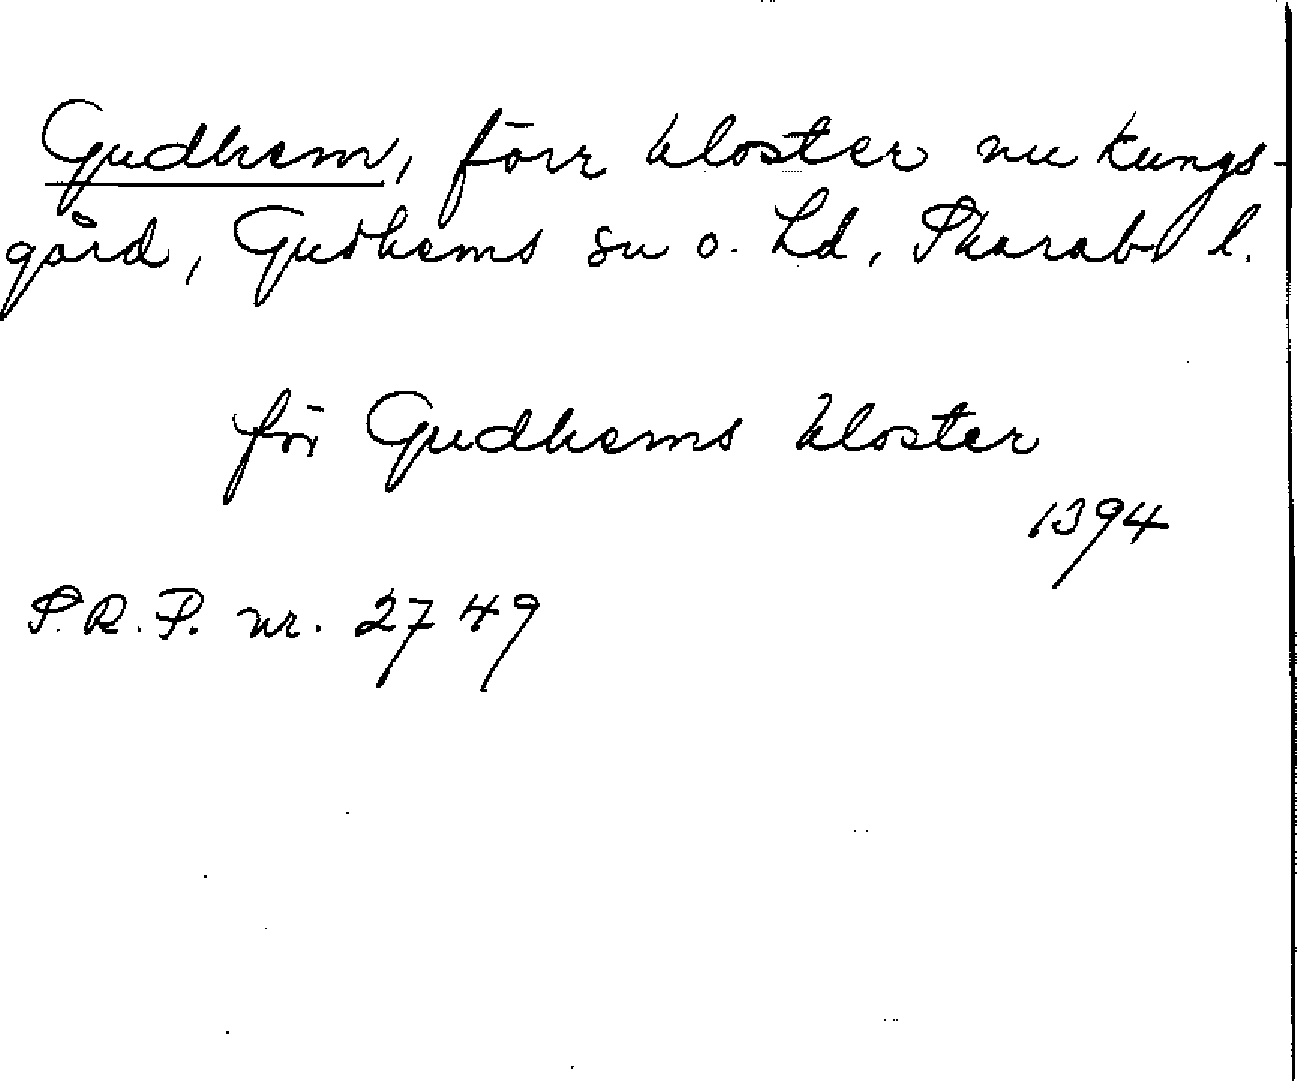 Gudhem, förr kloster nu kungs-
gård, Gudhems sn o. hd, Skarab l.
för Gudhems kloster
1394
S.R.P. nr. 2749